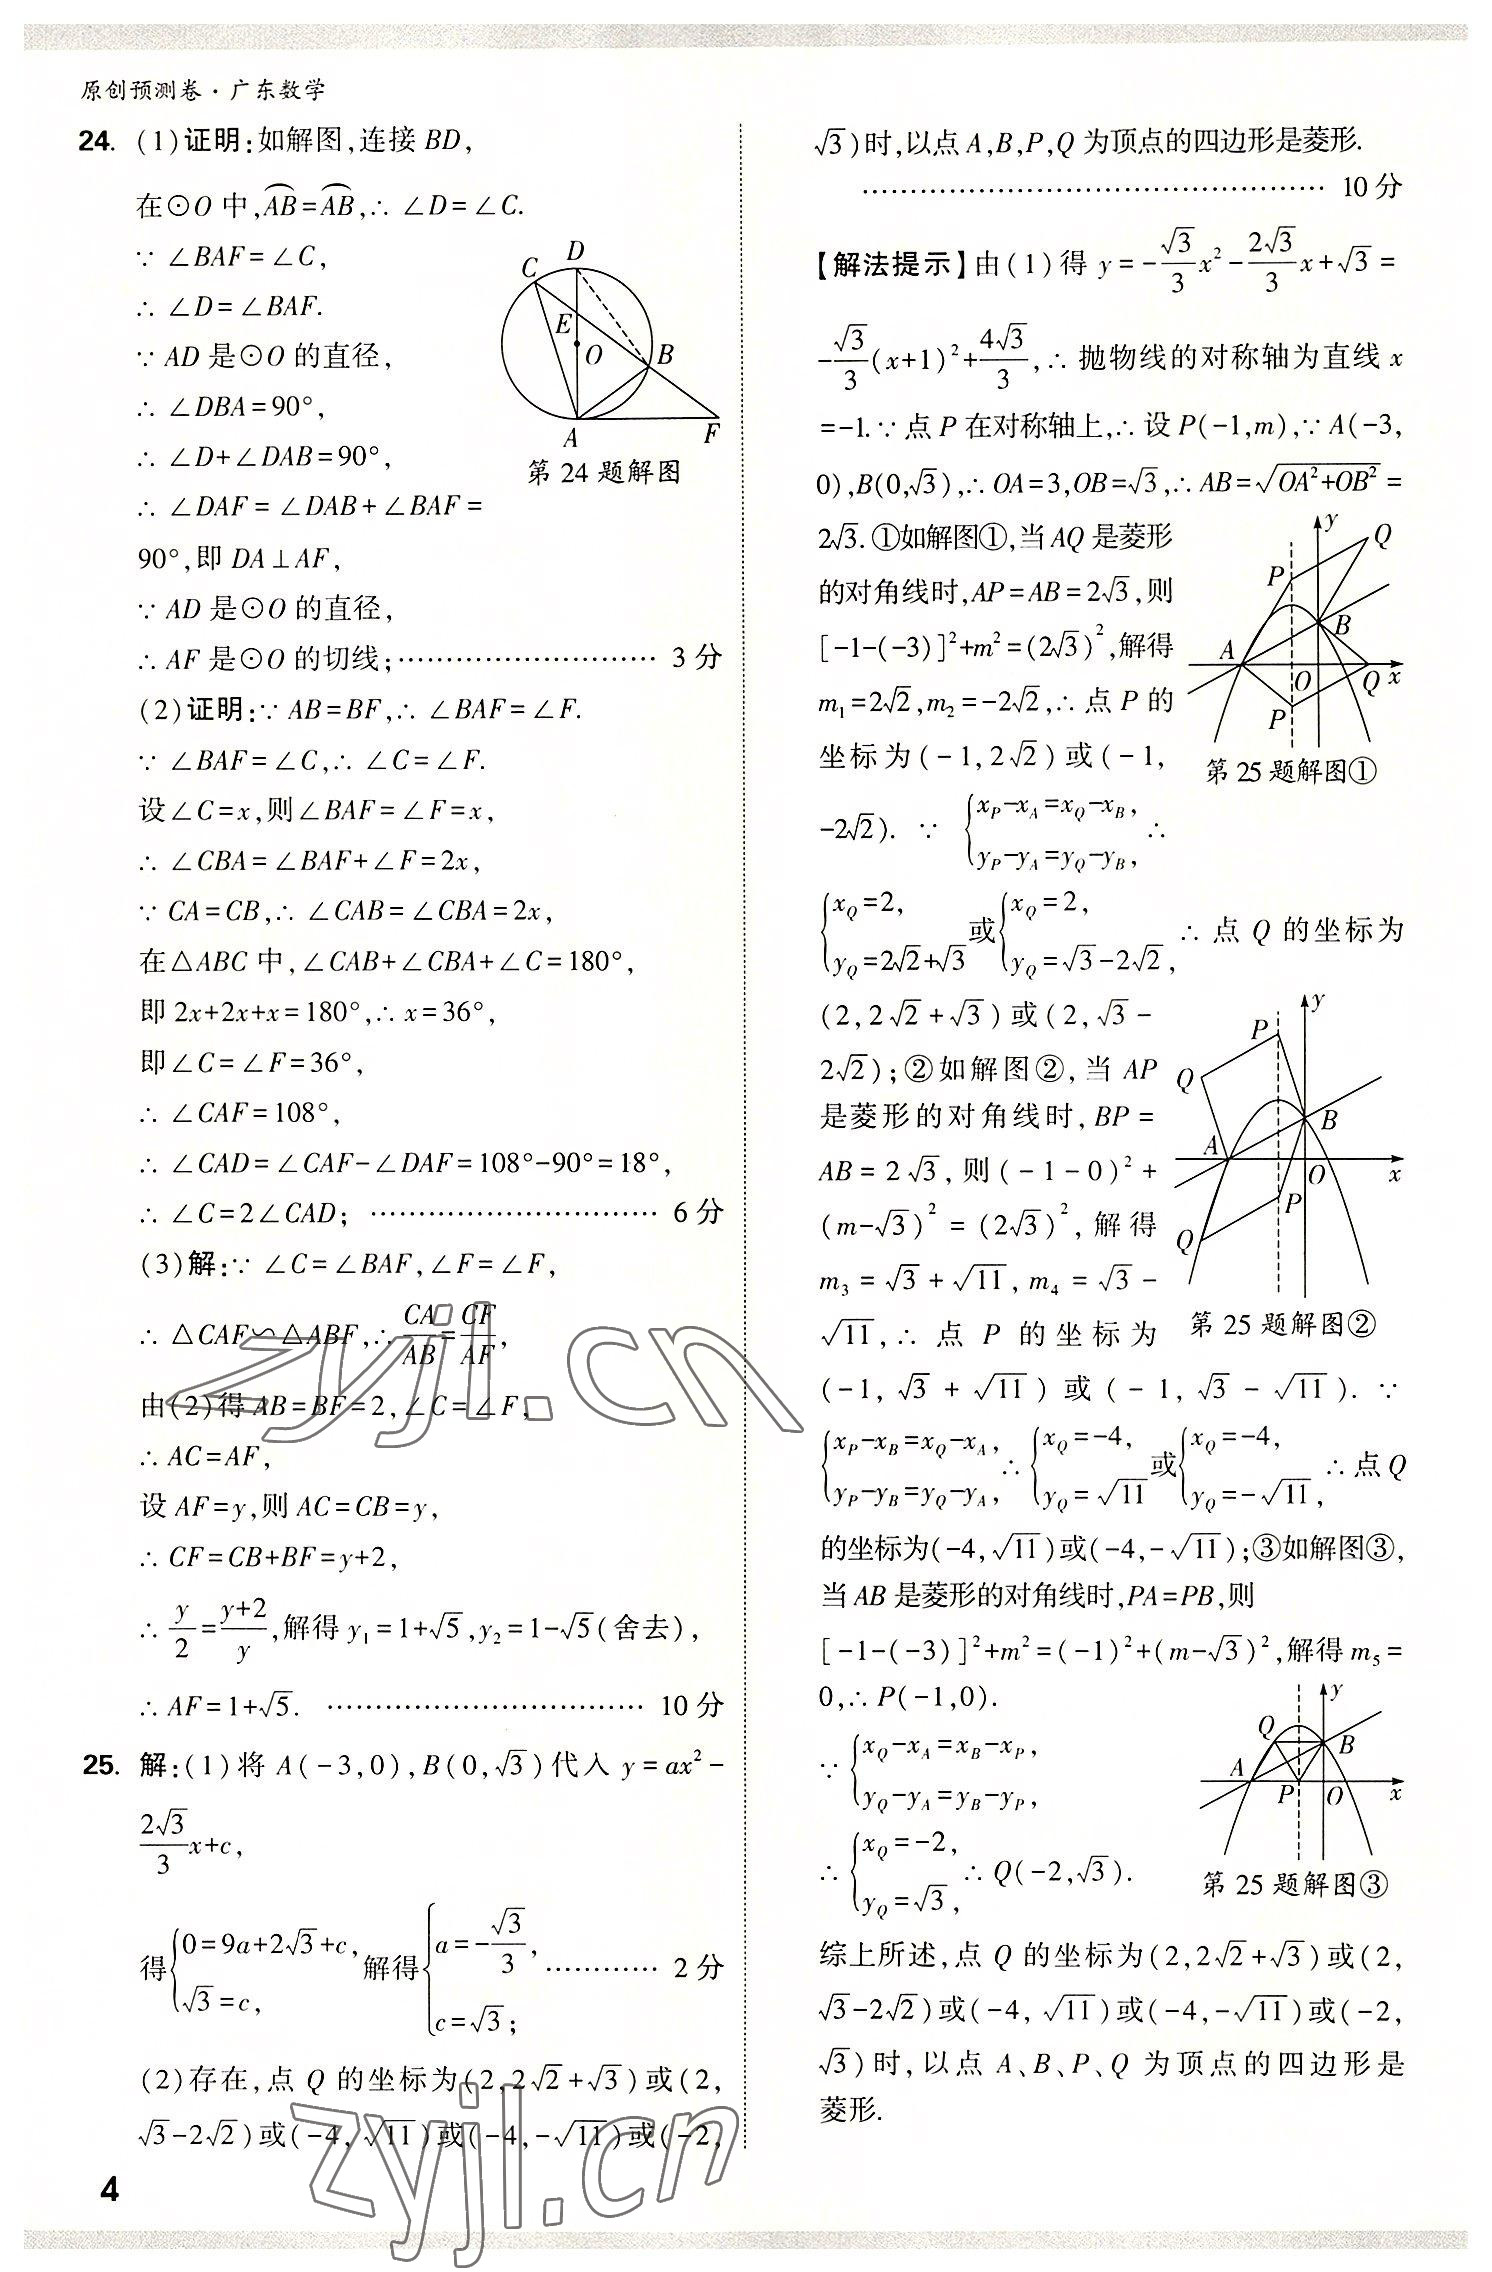 原创预测卷·广东数学
24. (1)证明:如解图,连接BD,
在⊙O中,AB=AB,∴∠D=∠C.
∵∠BAF=∠C,
∴∠D=∠BAF.
∵AD是⊙O的直径,
∴∠DBA=90°,
∴∠D+∠DAB=90°,
∴∠DAF=∠DAB+∠BAF=
90°,即DA⊥AF,
∵AD是⊙O的直径,
∴AF是⊙O的切线;………………………… 3分
C D E O B A F
第24题解图
(2)证明:∵AB=BF,∴∠BAF=∠F.
∵∠BAF=∠C,∴∠C=∠F.
设∠C=x,则∠BAF=∠F=x,
∴∠CBA=∠BAF+∠F=2x,
∵CA=CB,∴∠CAB=∠CBA=2x,
在△ABC中,∠CAB+∠CBA+∠C=180°,
即2x+2x+x=180°,∴x=36°,
即∠C=∠F=36°,
∴∠CAF=108°,
∴∠CAD=∠CAF-∠DAF=108°-90°=18°,
∴∠C=2∠CAD; ………………………… 6分
(3)解:∵∠C=∠BAF,∠F=∠F,
∴△CAF∽△ABF,∴CA/AB=CF/AF,
由(2)得AB=BF=2,∠C=∠F,
∴AC=AF,
设AF=y,则AC=CB=y,
∴CF=CB+BF=y+2,
∴y/2=(y+2)/y,解得y₁=1+√5,y₂=1-√5(舍去),
∴AF=1+√5. ………………………… 10分
25. 解:(1)将A(-3,0),B(0,√3)代入y=ax²-
2√3/3 x+c,
得{0=9a+2√3+c, √3=c, 解得{a=-√3/3, c=√3; ………… 2分
(2)存在,点Q的坐标为(2,2√2+√3)或(2,
√3-2√2)或(-4,√11)或(-4,-√11)或(-2,
4
√3)时,以点A,B,P,Q为顶点的四边形是菱形.
………………………………………… 10分
【解法提示】由(1)得y=-√3/3 x²-2√3/3 x+√3=
-√3/3(x+1)²+4√3/3,∴抛物线的对称轴为直线x
=-1.∵点P在对称轴上,∴设P(-1,m),∵A(-3,
0),B(0,√3),∴OA=3,OB=√3,∴AB=√(OA²+OB²)=
2√3.①如解图①,当AQ是菱形
的对角线时,AP=AB=2√3,则
[-1-(-3)]²+m²=(2√3)²,解得
m₁=2√2,m₂=-2√2,∴点P的
坐标为(-1,2√2)或(-1,
-2√2). ∵{x_P-x_A=x_Q-x_B, y_P-y_A=y_Q-y_B, ∴
y Q P B A O Q x P
第25题解图①
{x_Q=2, y_Q=2√2+√3 或{x_Q=2, y_Q=√3-2√2, ∴点Q的坐标为
(2,2√2+√3)或(2,√3-
2√2);②如解图②,当AP
是菱形的对角线时,BP=
AB=2√3,则(-1-0)²+
(m-√3)²=(2√3)²,解得
m₃=√3+√11,m₄=√3-
√11,∴点P的坐标为
y P Q B A O x P Q
第25题解图②
(-1,√3+√11)或(-1,√3-√11).∵
{x_P-x_B=x_Q-x_A, y_P-y_B=y_Q-y_A, ∴{x_Q=-4, y_Q=√11 或{x_Q=-4, y_Q=-√11, ∴点Q
的坐标为(-4,√11)或(-4,-√11);③如解图③,
当AB是菱形的对角线时,PA=PB,则
[-1-(-3)]²+m²=(-1)²+(m-√3)²,解得m₅=
0,∴P(-1,0).
∵{x_Q-x_A=x_B-x_P, y_Q-y_A=y_B-y_P,
∴{x_Q=-2, y_Q=√3, ∴Q(-2,√3).
y Q B A P O x
第25题解图③
综上所述,点Q的坐标为(2,2√2+√3)或(2,
√3-2√2)或(-4,√11)或(-4,-√11)或(-2,
√3)时,以点A、B、P、Q为顶点的四边形是
菱形.
zyjl.cn
zyjl.cn